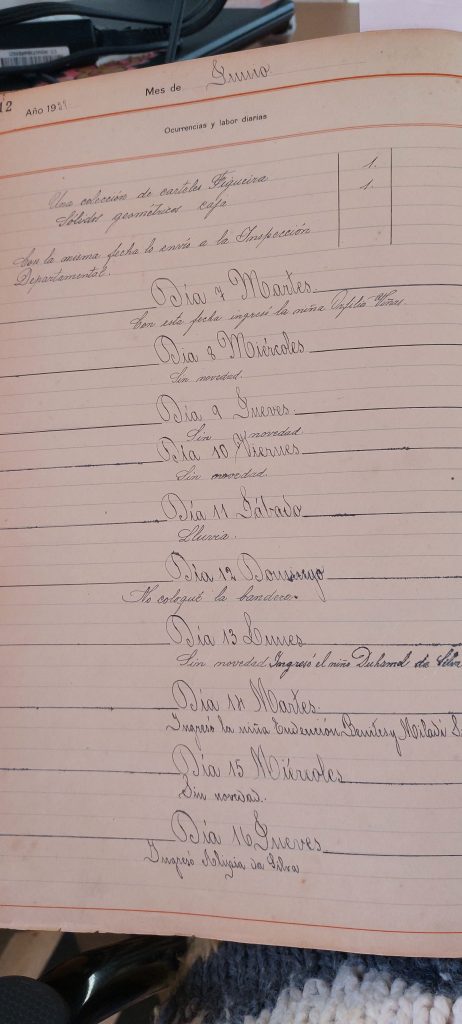 12 Año 19 Mes de Junio
Ocurrencias y labor diarias
Una colección de carteles Figueira 1.
Sólidos geométricos caja 1.
Con la misma fecha lo envío a la Inspección
Departamental.
Día 7 Martes.
Con esta fecha ingresó la niña Viñas
Día 8 Miércoles
Sin novedad.
Día 9 Jueves.
Sin novedad
Día 10 Viernes
Sin novedad.
Día 11 Sábado
Lluvia.
Día 12 Domingo
No coloqué la bandera.
Día 13 Lunes
Sin novedad Ingresó el niño Duhamel da Silva
Día 14 Martes.
Ingresó la niña Benites y Miladi
Día 15 Miércoles
Sin novedad.
Día 16 Jueves
Ingresó da Silva